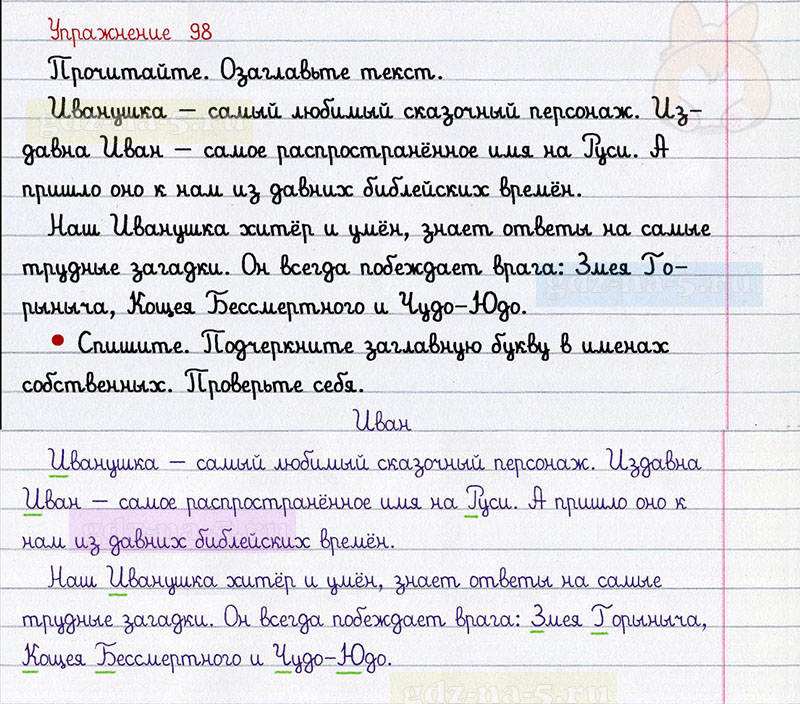 Упражнение 98
Прочитайте. Озаглавьте текст.
Иванушка — самый любимый сказочный персонаж. Из-
давна Иван — самое распространённое имя на Руси. А
пришло оно к нам из давних библейских времён.
Наш Иванушка хитёр и умён, знает ответы на самые
трудные загадки. Он всегда побеждает врага: Змея Го-
рыныча, Кощея Бессмертного и Чудо-Юдо.
• Спишите. Подчеркните заглавную букву в именах
собственных. Проверьте себя.
Иван
Иванушка — самый любимый сказочный персонаж. Издавна
Иван — самое распространённое имя на Руси. А пришло оно к
нам из давних библейских времён.
Наш Иванушка хитёр и умён, знает ответы на самые
трудные загадки. Он всегда побеждает врага: Змея Горыныча,
Кощея Бессмертного и Чудо-Юдо.
gdz-na-5.ru
gdz-na-5.ru
gdz-na-5.ru
gdz-na-5.ru